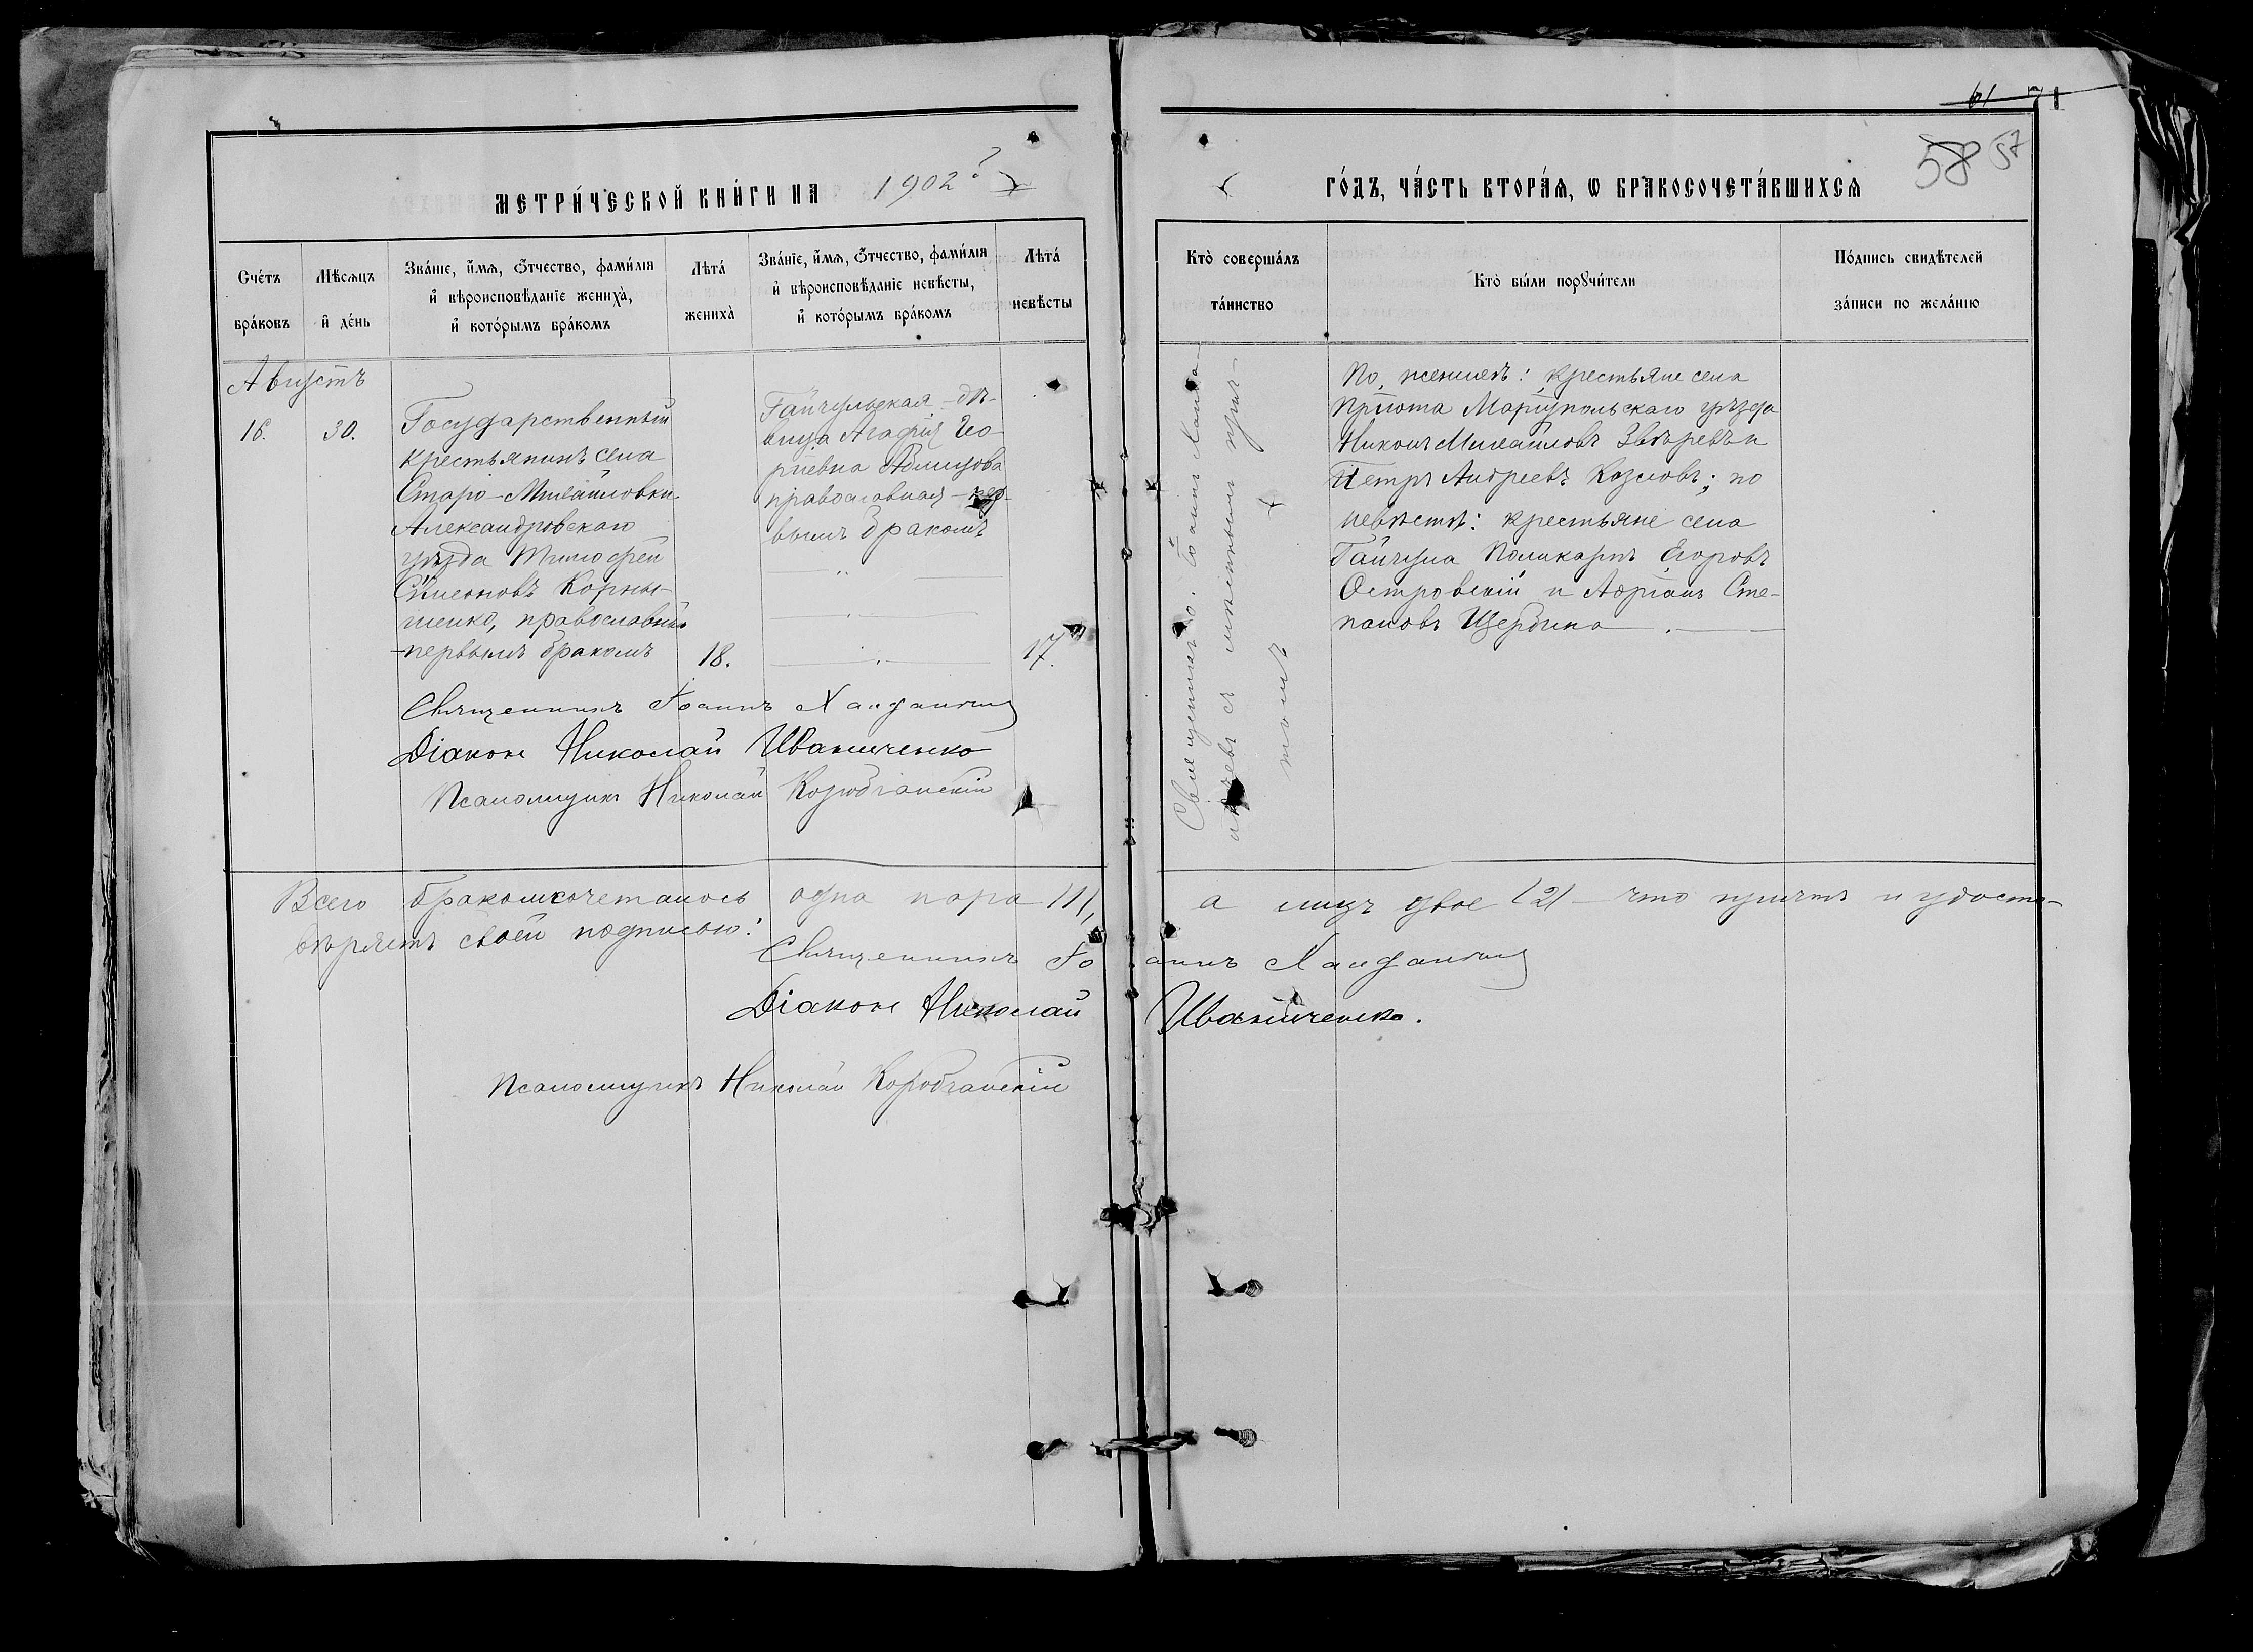 61 71
58 57
МЕТРИ́ЧЕСКОЙ КНИ́ГИ НА 1902 ГО́ДЪ, ЧА́СТЬ ВТОРА́Ѧ, Ѡ БРАКОСОЧЕТА́ВШИХСѦ
Сче́тъ
бра́ковъ
Мѣсѧцъ
и҆ де́нь
Зва́нїе, и҆́мѧ, ѻ҆́тчество, фами́лїѧ
и҆ вѣроисповѣданїе жениха̀,
и҆ кото́рымъ бра́комъ
Лѣта́
жениха̀
Зва́нїе, и҆́мѧ, ѻ҆́тчество, фами́лїѧ
и҆ вѣроисповѣданїе невѣсты,
и҆ кото́рымъ бра́комъ
Лѣта́
невѣсты
Кто̀ соверша́лъ
та́инство
Кто̀ бы́ли порꙋчи́тели
По́дпись свидѣтелей
за́писи по жела́нїю
Августъ
16.
30.
Государственный
крестьянинъ села
Старо-Михайловки
Александровскаго
уѣзда Тимофей
Симеоновъ Корны-
шенко, православный
первымъ бракомъ
18.
Гайчульская дѣ-
вица Агафія Гео-
ргіевна
православная - пер-
вымъ бракомъ
17.
Священникъ Іоаннъ
съ мѣстнымъ прич-
томъ
По женихѣ: крестьяне села
Пріюта Маріупольскаго уѣзда
Никонъ Михайловъ Звѣревъ и
Петръ Андреевъ Козловъ; по
невѣстѣ: крестьяне села
Гайчула Поликарпъ Егоровъ
Островскій и Адріанъ Сте-
пановъ Щербина
Священникъ Іоаннъ
Діаконъ Николай Иваниченко
Псаломщикъ Николай Коробчанскій
Всего бракомсочеталось одна пара /1/, а лицъ двое /2/ что причтъ и удосто-
вѣряетъ своей подписью:
Священникъ Іоаннъ
Діаконъ Николай Иваниченко.
Псаломщикъ Николай Коробчанскій